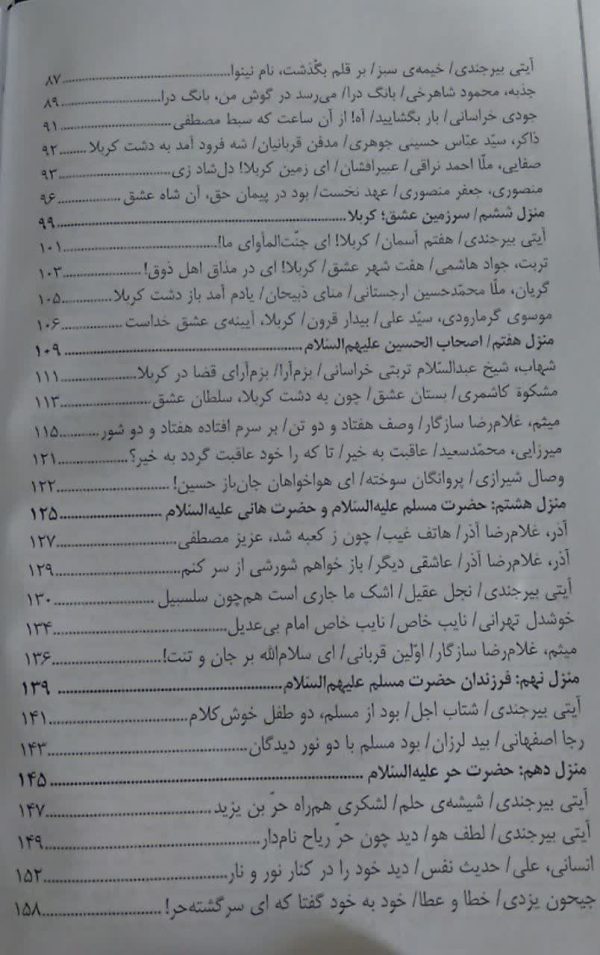 آیتی بیرجندی/ خیمه‌ی سبز/ بر قلم بگذشت، نام نینوا..........۸۷
جذبه، محمود شاهرخی/ بانگ درا/ می‌رسد در گوش من، بانگ درا..........۸۹
جودی خراسانی/ بار بگشایید/ آه! از آن ساعت که سبط مصطفی..........۹۱
ذاکر، سیّد عبّاس حسینی جوهری/ مدفن قربانیان/ شه فرود آمد به دشت کربلا..........۹۲
صفایی، ملّا احمد نراقی/ عبیرافشان/ ای زمین کربلا! دل‌شاد زی..........۹۳
منصوری، جعفر منصوری/ عهد نخست/ بود در پیمان حق، آن شاه عشق..........۹۶
منزل ششم/ سرزمین عشق؛ کربلا..........۹۹
آیتی بیرجندی/ هفتم آسمان/ کربلا! ای جنّت‌المأوای ما!..........۱۰۱
تربت، جواد هاشمی/ هفت شهر عشق/ کربلا! ای در مذاق اهل ذوق!..........۱۰۳
گریان، ملّا محمّدحسین ارجستانی/ منای ذبیحان/ یادم آمد باز دشت کربلا..........۱۰۵
موسوی گرمارودی، سیّد علی/ بیدار قرون/ کربلا، آیینه‌ی عشق خداست..........۱۰۶
منزل هفتم/ اصحاب الحسین علیهم‌السّلام..........۱۰۹
شهاب، شیخ عبدالسّلام تربتی خراسانی/ بزم‌آرا/ بزم‌آرای قضا در کربلا..........۱۱۱
مشکوة کاشمری/ بستان عشق/ چون به دشت کربلا، سلطان عشق..........۱۱۳
میثم، غلام‌رضا سازگار/ وصف هفتاد و دو تن/ بر سرم افتاده هفتاد و دو شور..........۱۱۵
میرزایی، محمّدسعید/ عاقبت به خیر/ تا که را خود عاقبت گردد به خیر؟..........۱۲۱
وصال شیرازی/ پروانگان سوخته/ ای هواخواهان جان‌باز حسین!..........۱۲۲
منزل هشتم: حضرت مسلم علیه‌السّلام و حضرت هانی علیه‌السّلام..........۱۲۵
آذر، غلام‌رضا آذر/ هاتف غیب/ چون ز کعبه شد، عزیز مصطفی..........۱۲۷
آذر، غلام‌رضا آذر/ عاشقی دیگر/ باز خواهم شورشی از سر کنم..........۱۲۹
آیتی بیرجندی/ نجل عقیل/ اشک ما جاری است هم‌چون سلسبیل..........۱۳۰
خوشدل تهرانی/ نایب خاص/ نایب خاص امام بی‌عدیل..........۱۳۴
میثم، غلام‌رضا سازگار/ اوّلین قربانی/ ای سلام‌الله بر جان و تنت!..........۱۳۶
منزل نهم: فرزندان حضرت مسلم علیهم‌السّلام..........۱۳۹
آیتی بیرجندی/ شتاب اجل/ بود از مسلم، دو طفل خوش‌کلام..........۱۴۱
رجا اصفهانی/ بید لرزان/ بود مسلم با دو نور دیدگان..........۱۴۳
منزل دهم: حضرت حر علیه‌السّلام..........۱۴۵
آیتی بیرجندی/ شیشه‌ی حلم/ لشکری هم‌راه حرّ بن یزید..........۱۴۷
آیتی بیرجندی/ لطف هو/ دید چون حرّ ریاح نام‌دار..........۱۴۹
انسانی، علی/ حدیث نفس/ دید خود را در کنار نور و نار..........۱۵۲
جیحون یزدی/ خطا و عطا/ خود به خود گفتا که ای سرگشته‌حر!..........۱۵۸